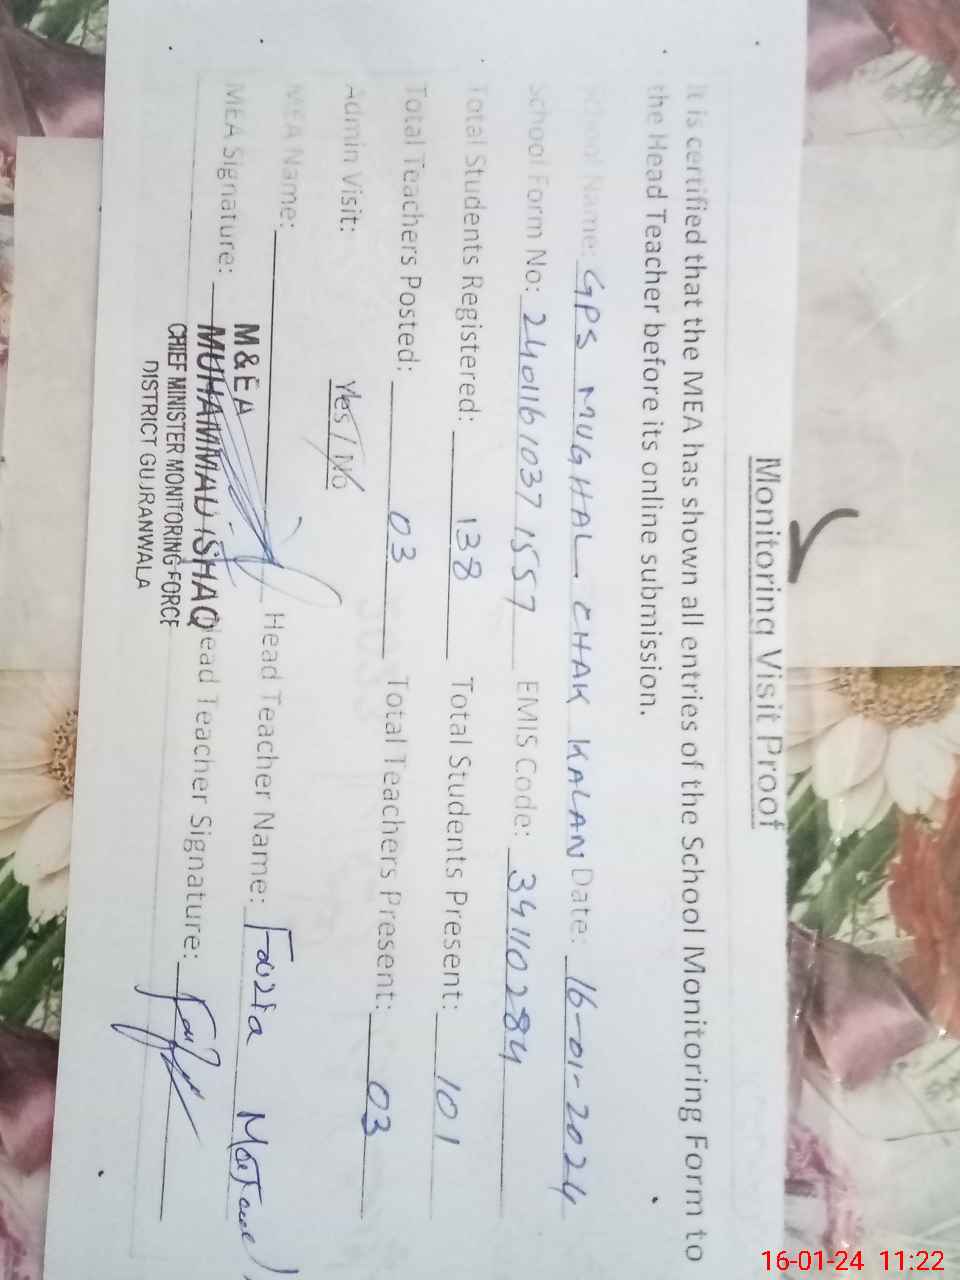 Monitoring Visit Proof
It is certified that the MEA has shown all entries of the School Monitoring Form to
the Head Teacher before its online submission.
School Name: GPS MUGHAL CHAK KALAN Date: 16-01-2024
School Form No: 2401161037 1557 EMIS Code: 34110284
Total Students Registered: 138 Total Students Present: 101
Total Teachers Posted: 03 Total Teachers Present: 03
Admin Visit: Yes / No
MEA Name: Head Teacher Name: Fouzia
MEA Signature: Head Teacher Signature:
M&EA
MUHAMMAD ISHAQ
CHIEF MINISTER MONITORING FORCE
DISTRICT GUJRANWALA
16-01-24 11:22